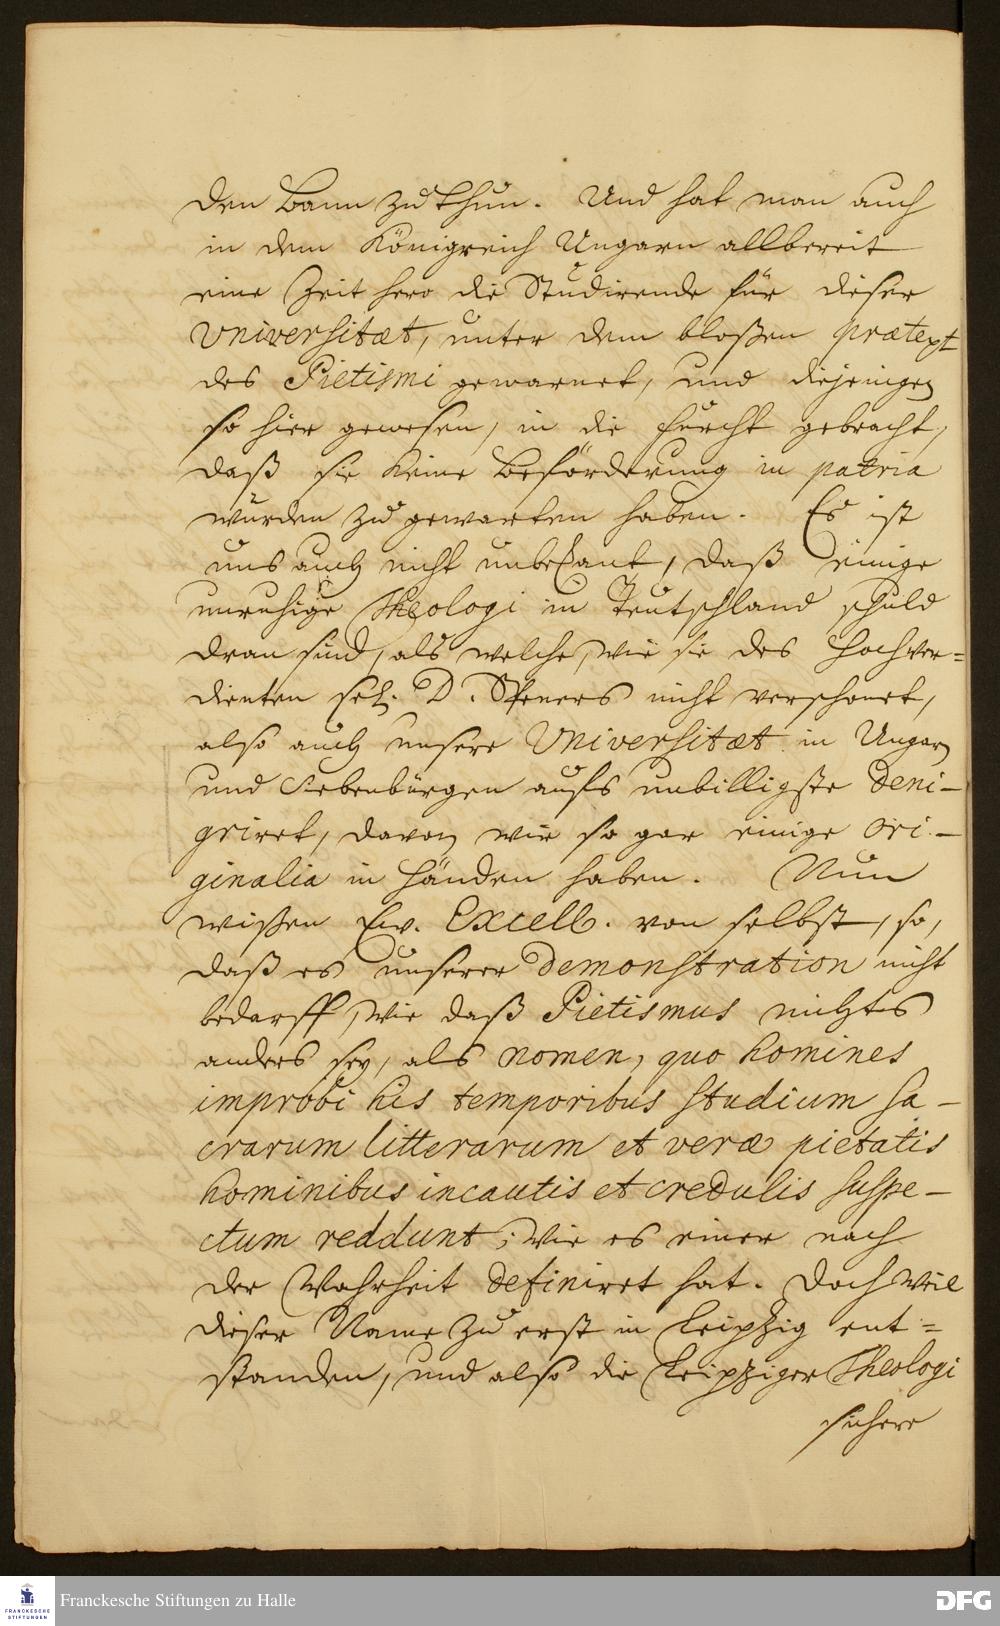 den Bann zu thun. Und hat man auch
in dem Königreich Ungarn allbereit
eine Zeit hero die Studirende für dieser
Universitæt, unter dem bloßen prætext
des Pietismi gewarnet, und diejenigen
so hier gewesen, in die furcht gebracht,
daß sie keine beförderung in patria
würden zu gewarten haben. Es ist
uns auch nicht unbekant, daß einige
unruhige Theologi in Teutschland schuld
dran sind, als welche, wie sie des Hochver=
dienten sel. D. Speners nicht verschonet,
also auch unsere Universitæt in Ungarn
und Siebenbürgen aufs unbilligste deni-
griret, davon wir so gar einige ori-
ginalia in Händen haben. Nun
wißen Ew. Excell. von selbst, so,
daß es unserer demonstration nicht
bedarff, wie daß Pietismus nichts
anders sey, als nomen, quo homines
improbi his temporibus studium sa-
crarum litterarum et veræ pietatis
hominibus incautis et credulis suspe-
ctum reddunt; wie es einer nach
der Wahrheit definiret hat. Doch weil
dieser Name zu erst in Leipzig ent=
standen, und also die Leipziger Theologi
sichere
Franckesche Stiftungen zu Halle
FRANCKESCHE
STIFTUNGEN
DFG